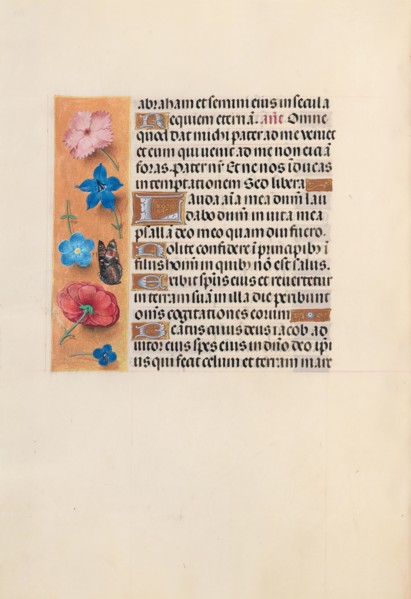 abraham et semini eius in secula
Requiem eternã. añe Omne
quod dat michi pater ad me veniet
et eum qui uenit ad me non eiciã
foras. Pater nr̃ Et ne nos iducas
in temptationem Sed libera
Lauda aĩa mea dnm̃ lau
dabo dnm̃ in uita mea
psallã deo meo quam diu fuero.
Nolite confidere ĩ principibꝫ ĩ
filiis homĩ in quibꝫ nõ est salus.
Exibit spũs eius et reuertetur
in terram suã in illa die peribunt
oms̃ cogitationes eorum
Beatus cuius deus iacob ad
iutor eius spes eius in dño deo ipĩ
us qui fecit celum et terram mare